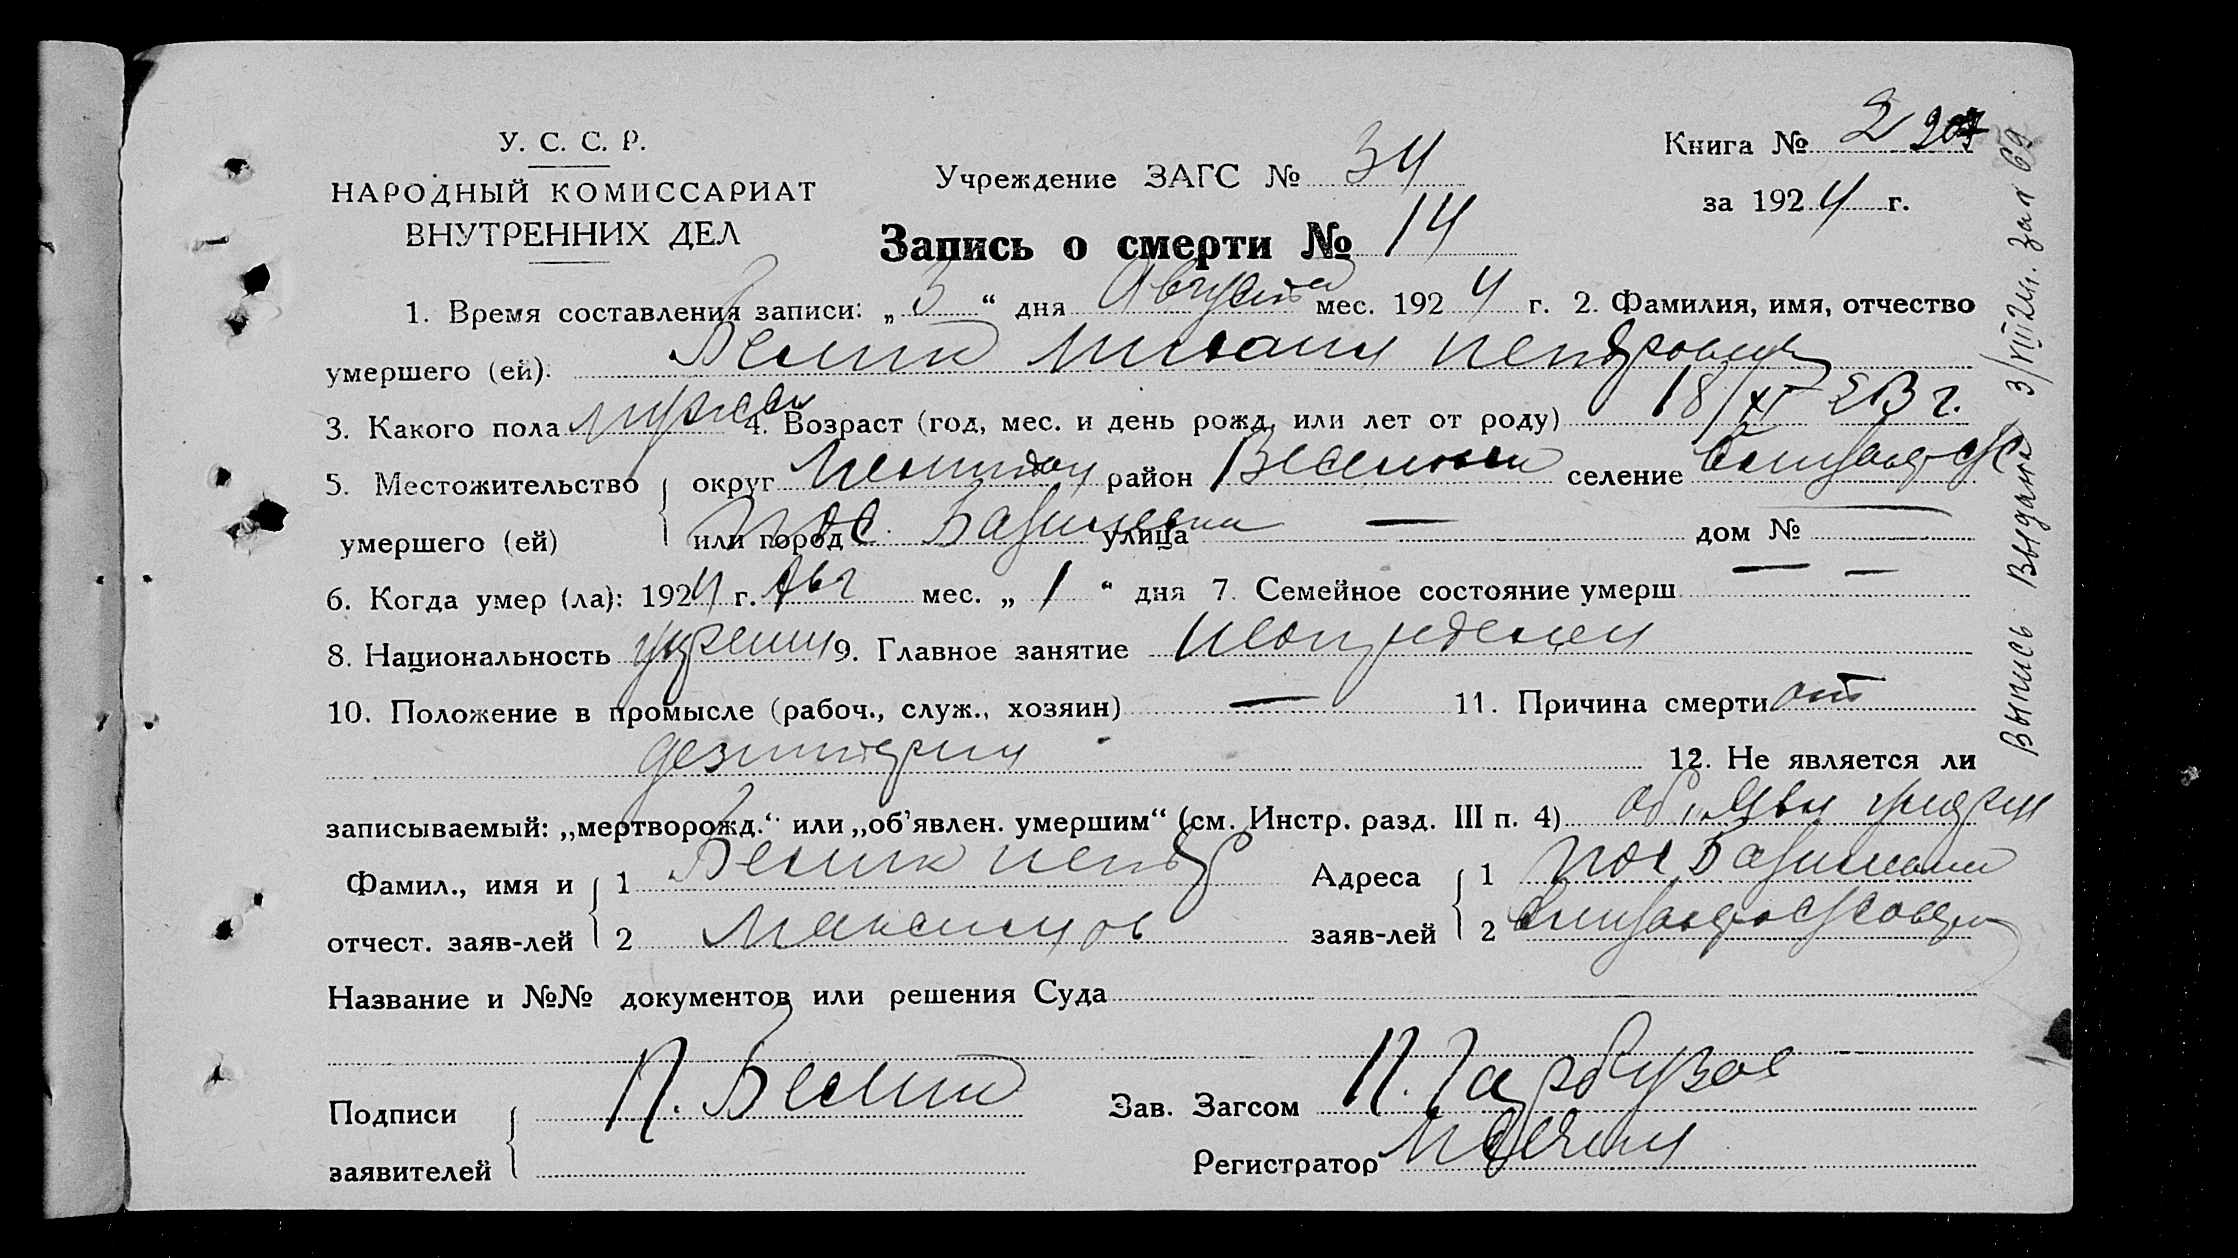 У. С. С. Р.
НАРОДНЫЙ КОМИССАРИАТ
ВНУТРЕННИХ ДЕЛ
Учреждение ЗАГС № 34
Книга № 2
за 1924 г.
Запись о смерти № 14
1. Время составления записи: „3“ дня Августа мес. 1924 г. 2. Фамилия, имя, отчество
умершего (ей). Белик Михаил Петрович
3. Какого пола мужск 4. Возраст (год, мес. и день рожд. или лет от роду) 18/XI 23 г.
5. Местожительство округ район селение
умершего (ей) или город пос. улица — дом № —
6. Когда умер (ла): 1924 г. Авг мес. „1“ дня 7. Семейное состояние умерш — —
8. Национальность украин 9. Главное занятие
10. Положение в промысле (рабоч., служ., хозяин) — 11. Причина смерти от
дезинтерии
12. Не является ли
записываемый: „мертворожд.“ или „об’явлен. умершим“ (см. Инстр. разд. III п. 4)
Фамил., имя и 1 Белик Петр Адреса 1 пос
отчест. заяв-лей 2 Максимов заяв-лей 2
Название и №№ документов или решения Суда
Подписи П. Белик Зав. Загсом П. Гарбузов
заявителей Регистратор
Выпись Выдана 3/VIII 24г. за № 69